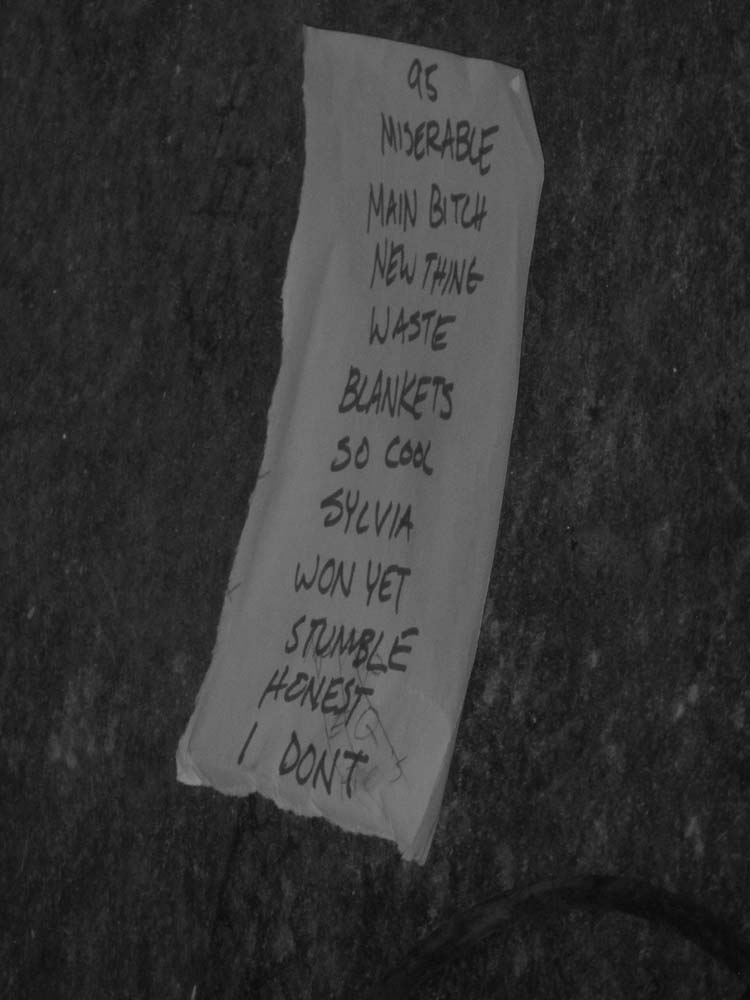 95
MISERABLE
MAIN BITCH
NEW THING
WASTE
BLANKETS
SO COOL
SYLVIA
WON YET
STUMBLE
HONEST
I DONT